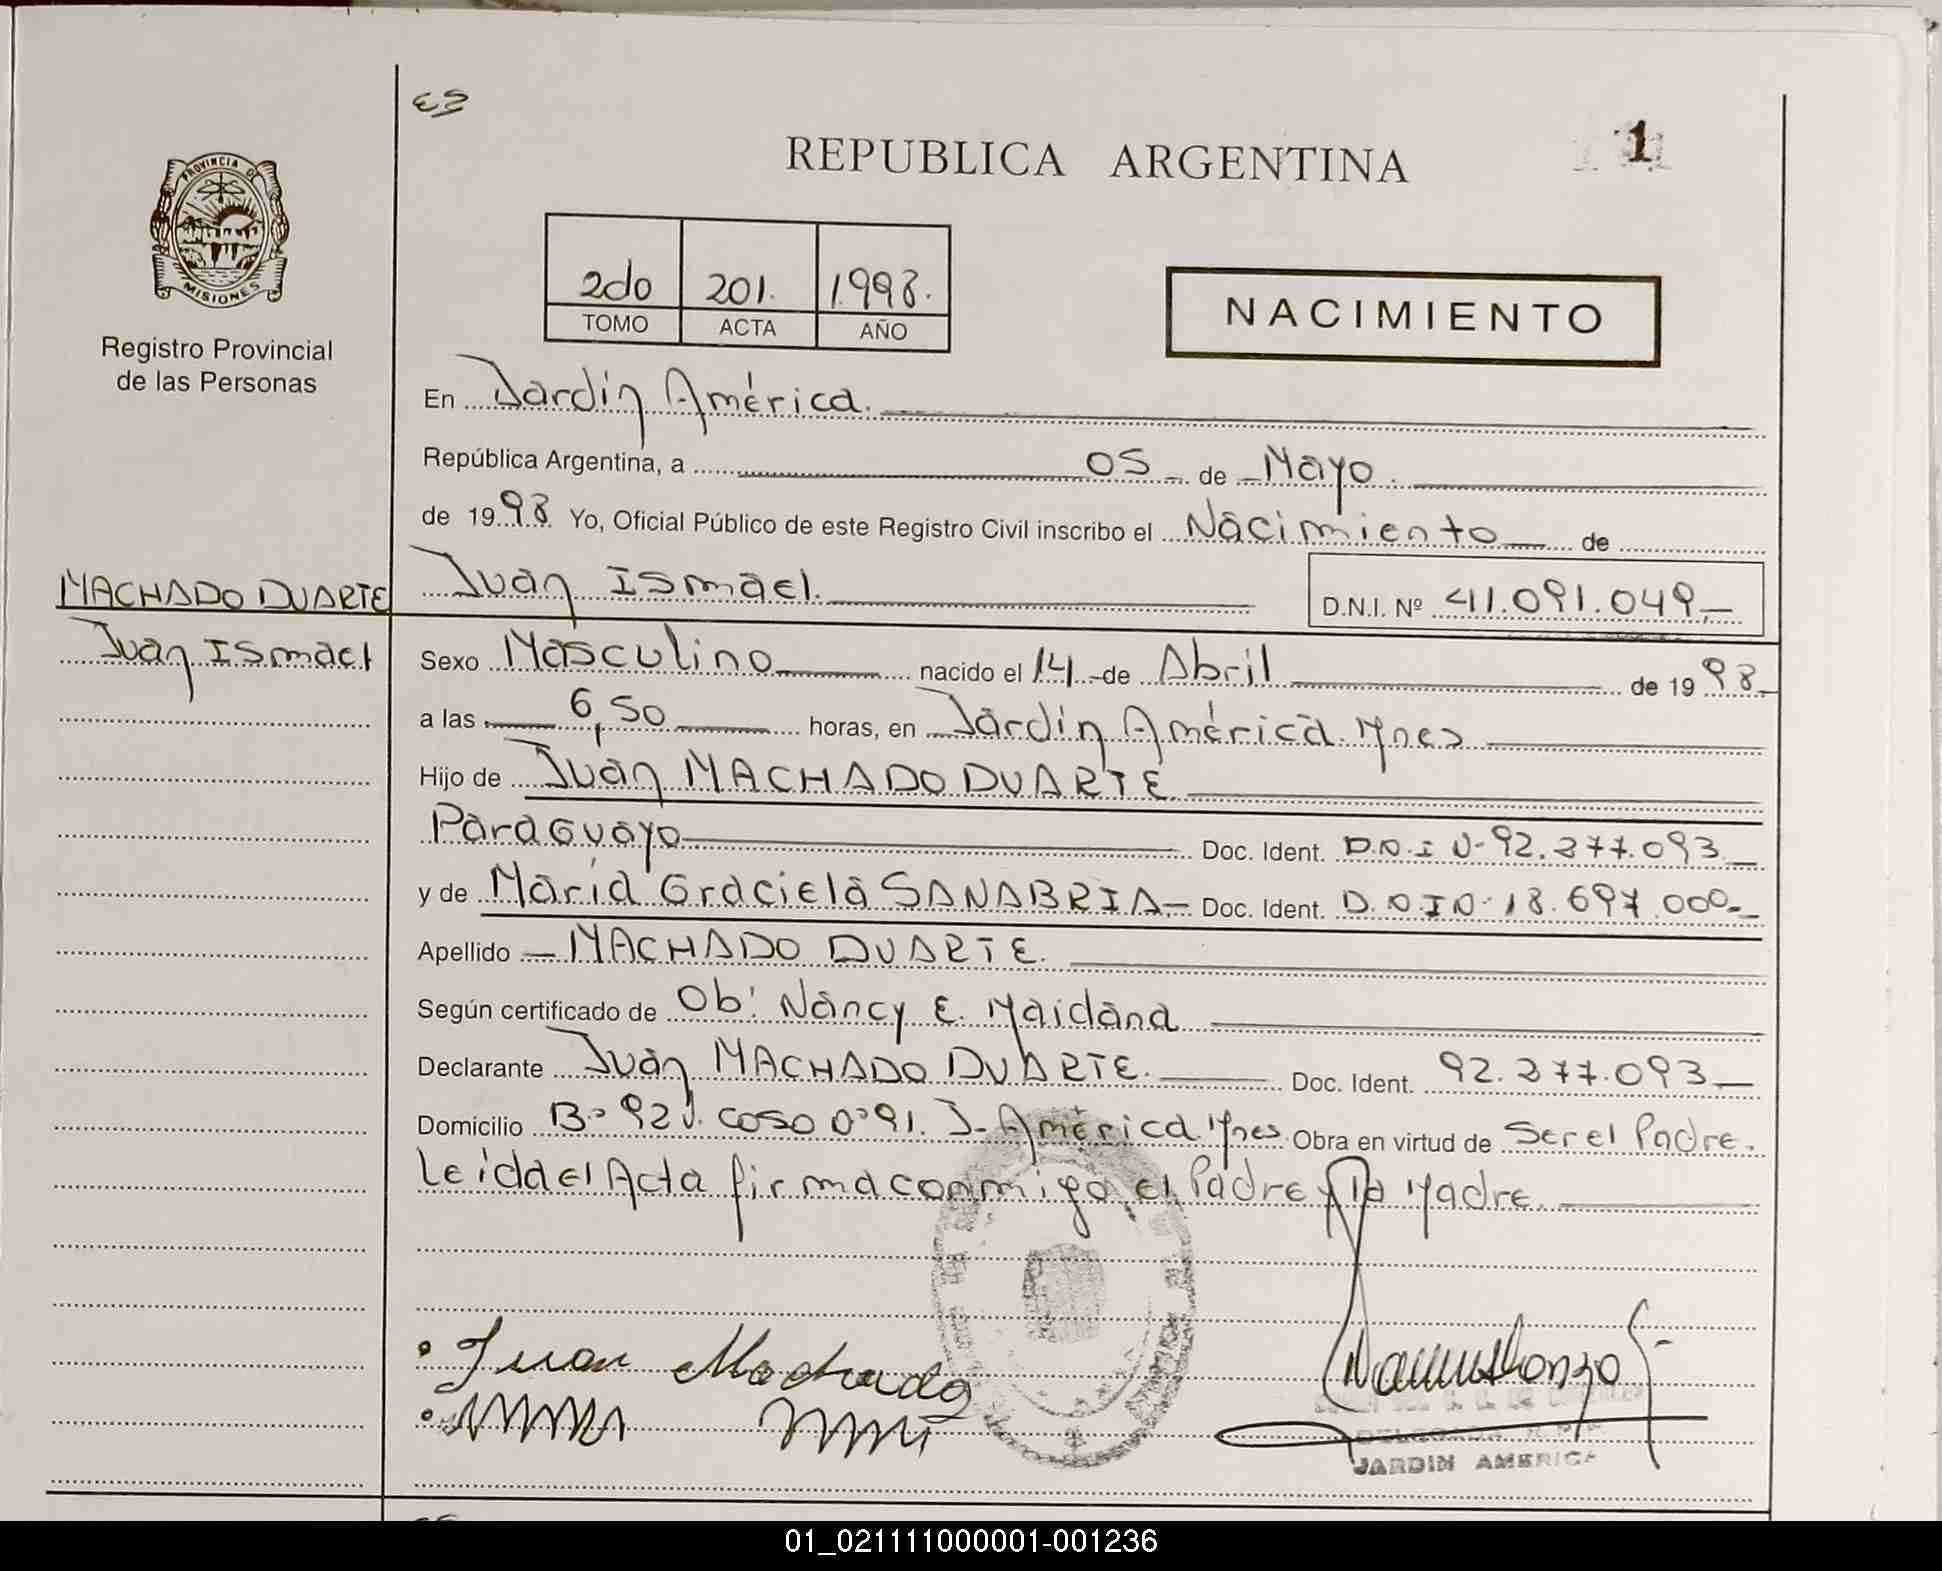 ES
REPUBLICA ARGENTINA
1
PROVINCIA DE
MISIONES
Registro Provincial
de las Personas
2do 201. 1.998.
TOMO ACTA AÑO
NACIMIENTO
En Jardín América.
República Argentina, a 05 de Mayo.
de 1998 Yo, Oficial Público de este Registro Civil inscribo el Nacimiento de
MACHADO DUARTE
Juan Ismael
Juan Ismael. D.N.I. Nº 41.091.049
Sexo Masculino nacido el 14 de Abril de 1998
a las 6,50 horas, en Jardín América. Mnes
Hijo de Juan MACHADO DUARTE
Paraguayo Doc. Ident. D.N.I N- 92.377.093
y de María Graciela SANABRIA.- Doc. Ident. D.N.I N- 18.697.000-
Apellido - MACHADO DUARTE.
Según certificado de Ob: Nancy E. Maidana
Declarante Juan MACHADO DUARTE. Doc. Ident. 92.377.093
Domicilio Bº 92 V. Caso nº 91. J. América Mnes. Obra en virtud de Ser el Padre.
Leida el Acta firma conmigo, el Padre y la Madre.
Juan Machado
JARDIN AMERICA
01_021111000001-001236